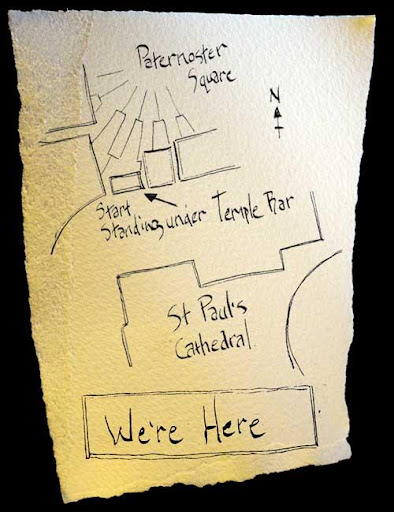 Paternoster
Square
N
Start
Standing under Temple Bar
St Paul's
Cathedral
We're Here